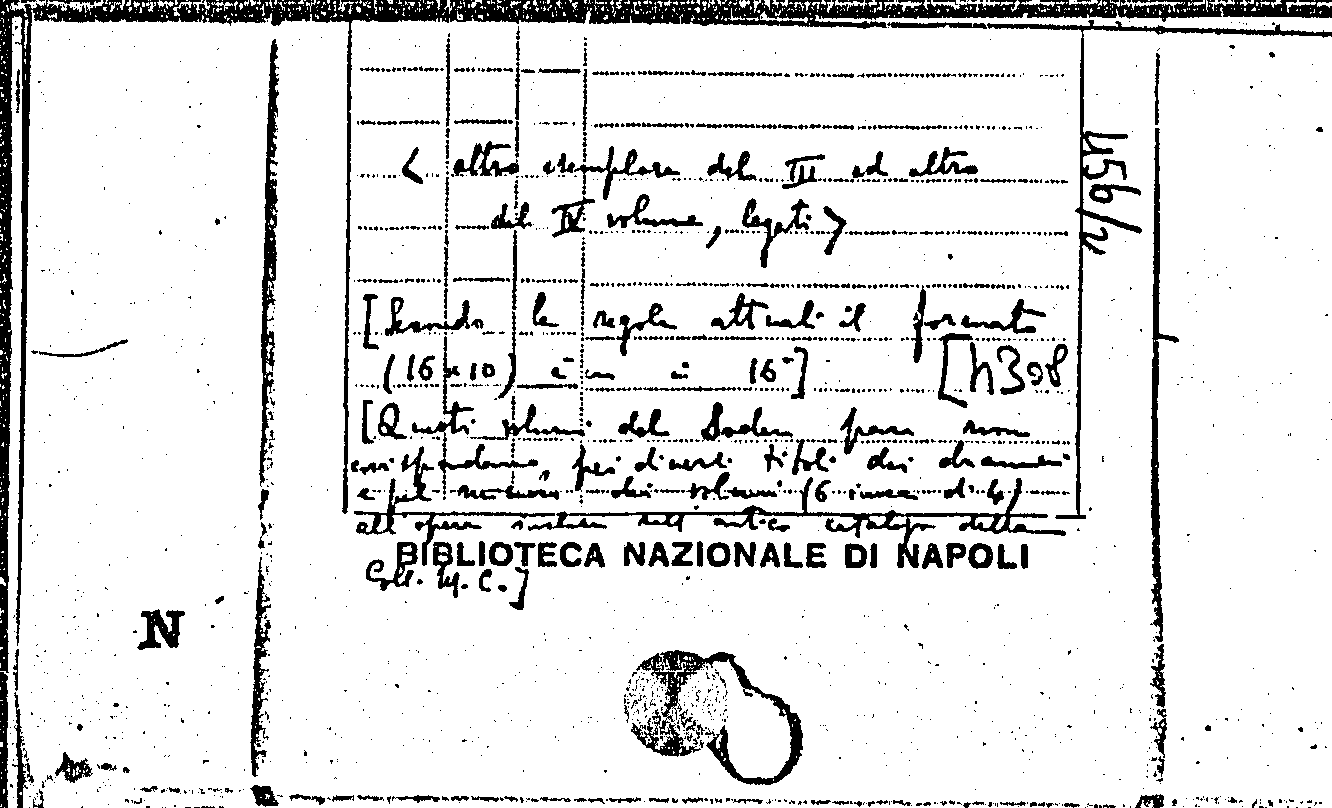 < altro esemplare del III ed altro
del IV volume, legati >
[Secondo le regole attuali il formato
(16 x 10) è in 16°]
[Questi volumi del pare non
corrispondano, per diversi titoli dei drammi
e pel numero dei volumi (6 invece di 4)
all'opera inclusa nell'antico catalogo della
Coll. M. C.]
BIBLIOTECA NAZIONALE DI NAPOLI
N